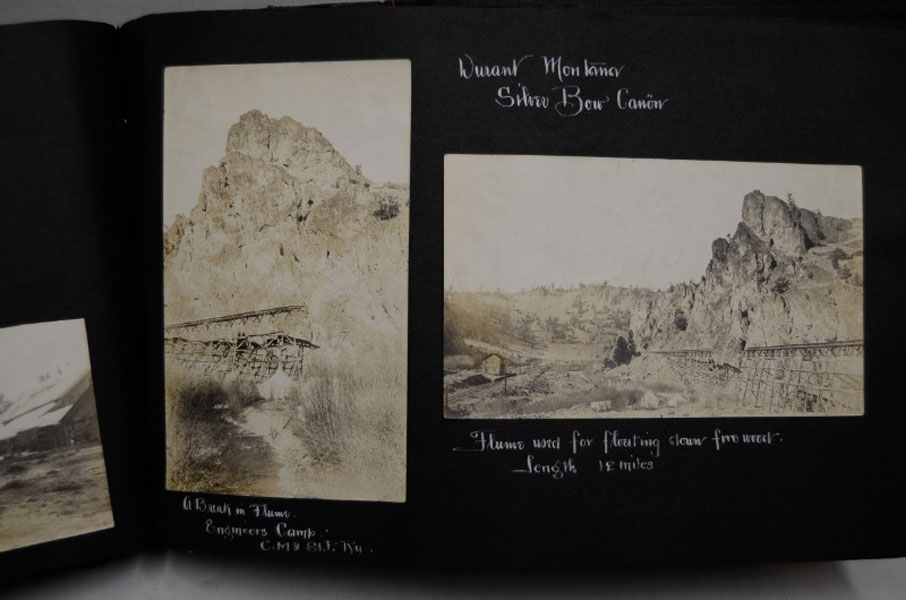 Durant Montana
Silver Bow Cañon
Flume used for floating down fire wood.
Length 12 miles
A Break in Flume.
Engineers Camp.
C. M & St. P. Ry.